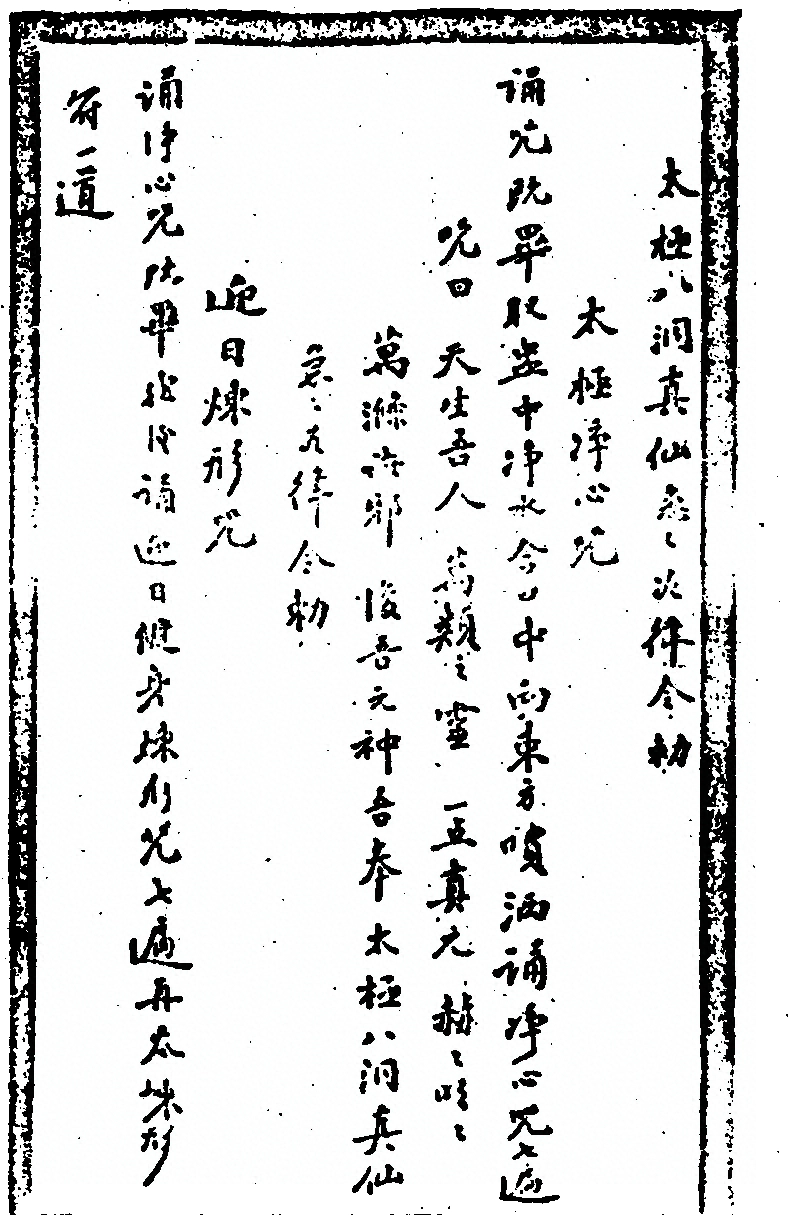 太極八洞真仙急〻如律令勅
太極淨心咒
誦咒既畢取盂中淨水含口中向東方噴洒誦淨心咒七遍
咒曰 天生吾人 萬類之靈 一立真元 赫〻
萬 邪 復吾元神吾奉太極八洞真仙
急〻如律令勅
迎日煉形咒
誦淨心咒既畢然後誦迎日健身煉形咒七遍再
符一道